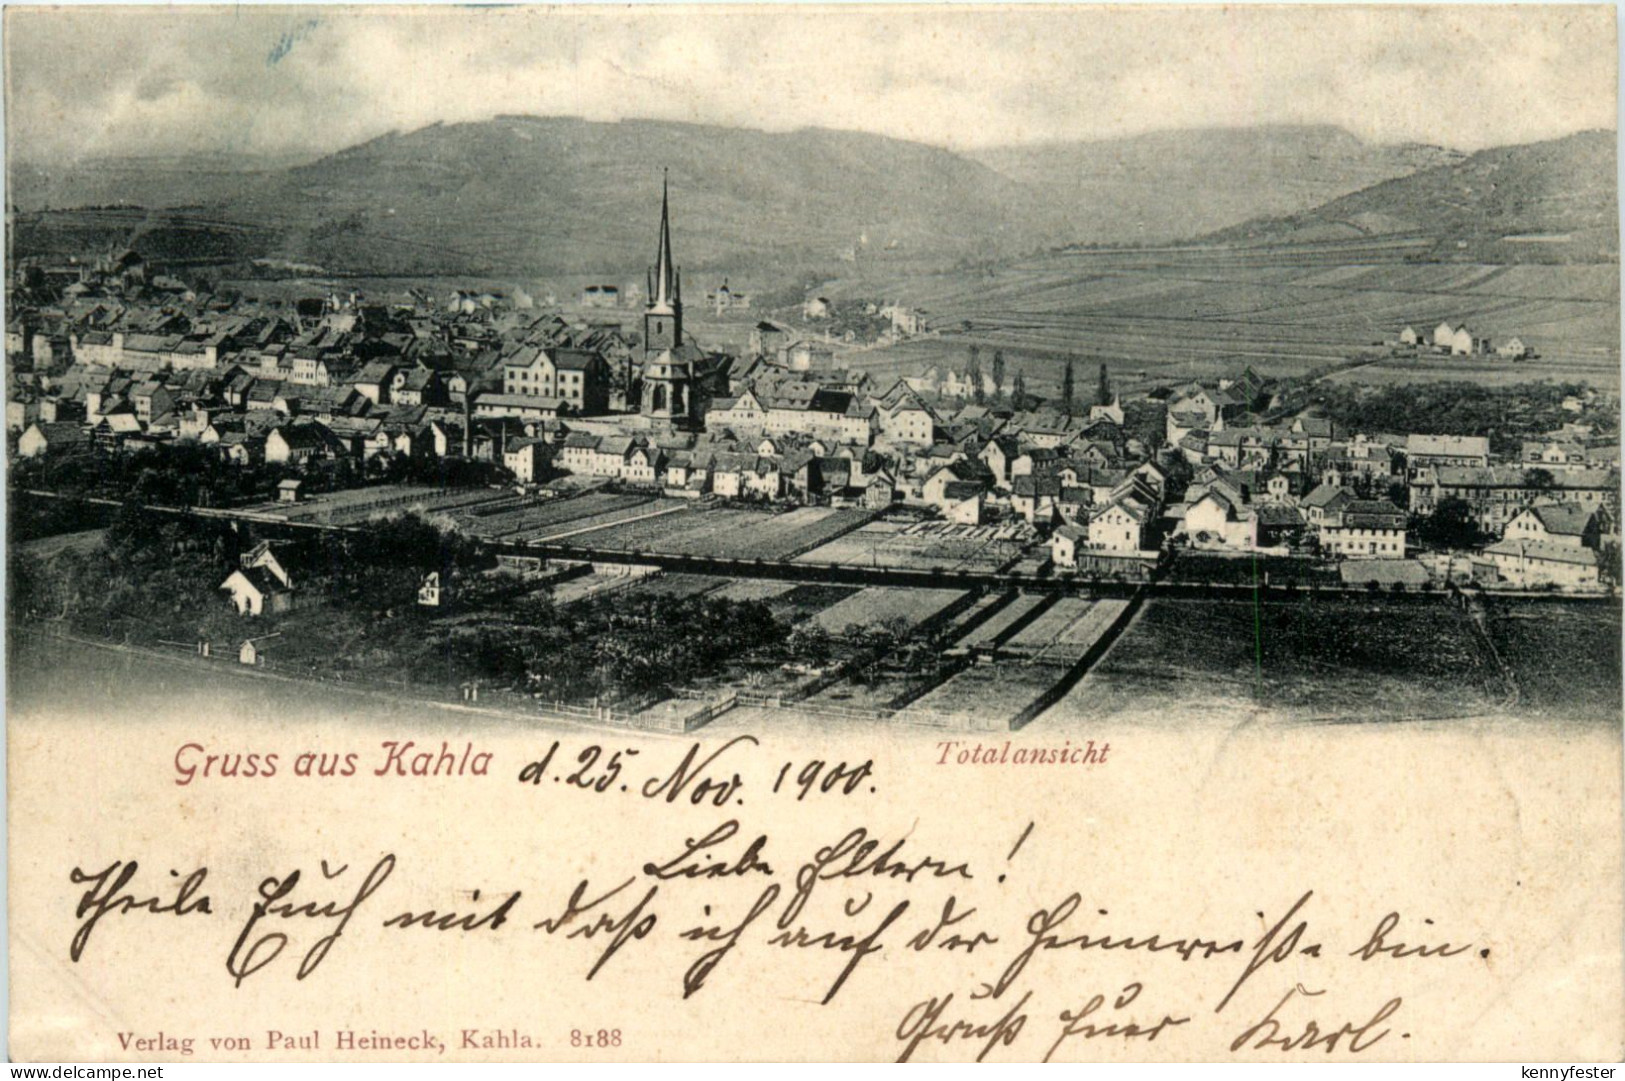 Gruss aus Kahla d. 25. Nov. 1900. Totalansicht
Liebe Eltern!
Theile Euch mit daß ich auf der Heimreise bin.
Gruß Euer Karl.
Verlag von Paul Heineck, Kahla. 8188
delcampe.net
kennyfester